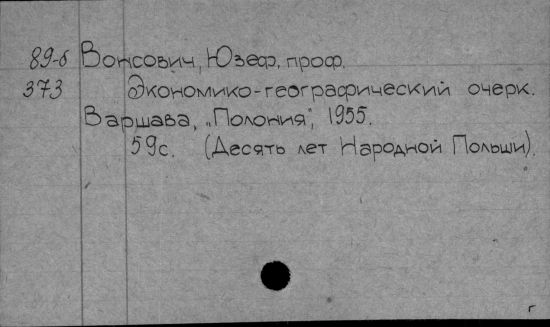 89-б Вонсович, Юзеф, проф.
373 Экономико-географический очерк.
Варшава, „Полония", 1955.
59с. (Десять лет Народной Польши).
г